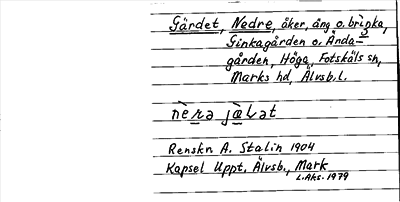 Gärdet, Nedre, åker, äng o. brinka,
Ginkagården o. Ända-
gården, Höga, Fotskäls sn,
Marks hd, Älvsb. l.
Renskn A. Stalin 1904
Kapsel Uppt. Älvsb., Mark
L. Aks. 1979